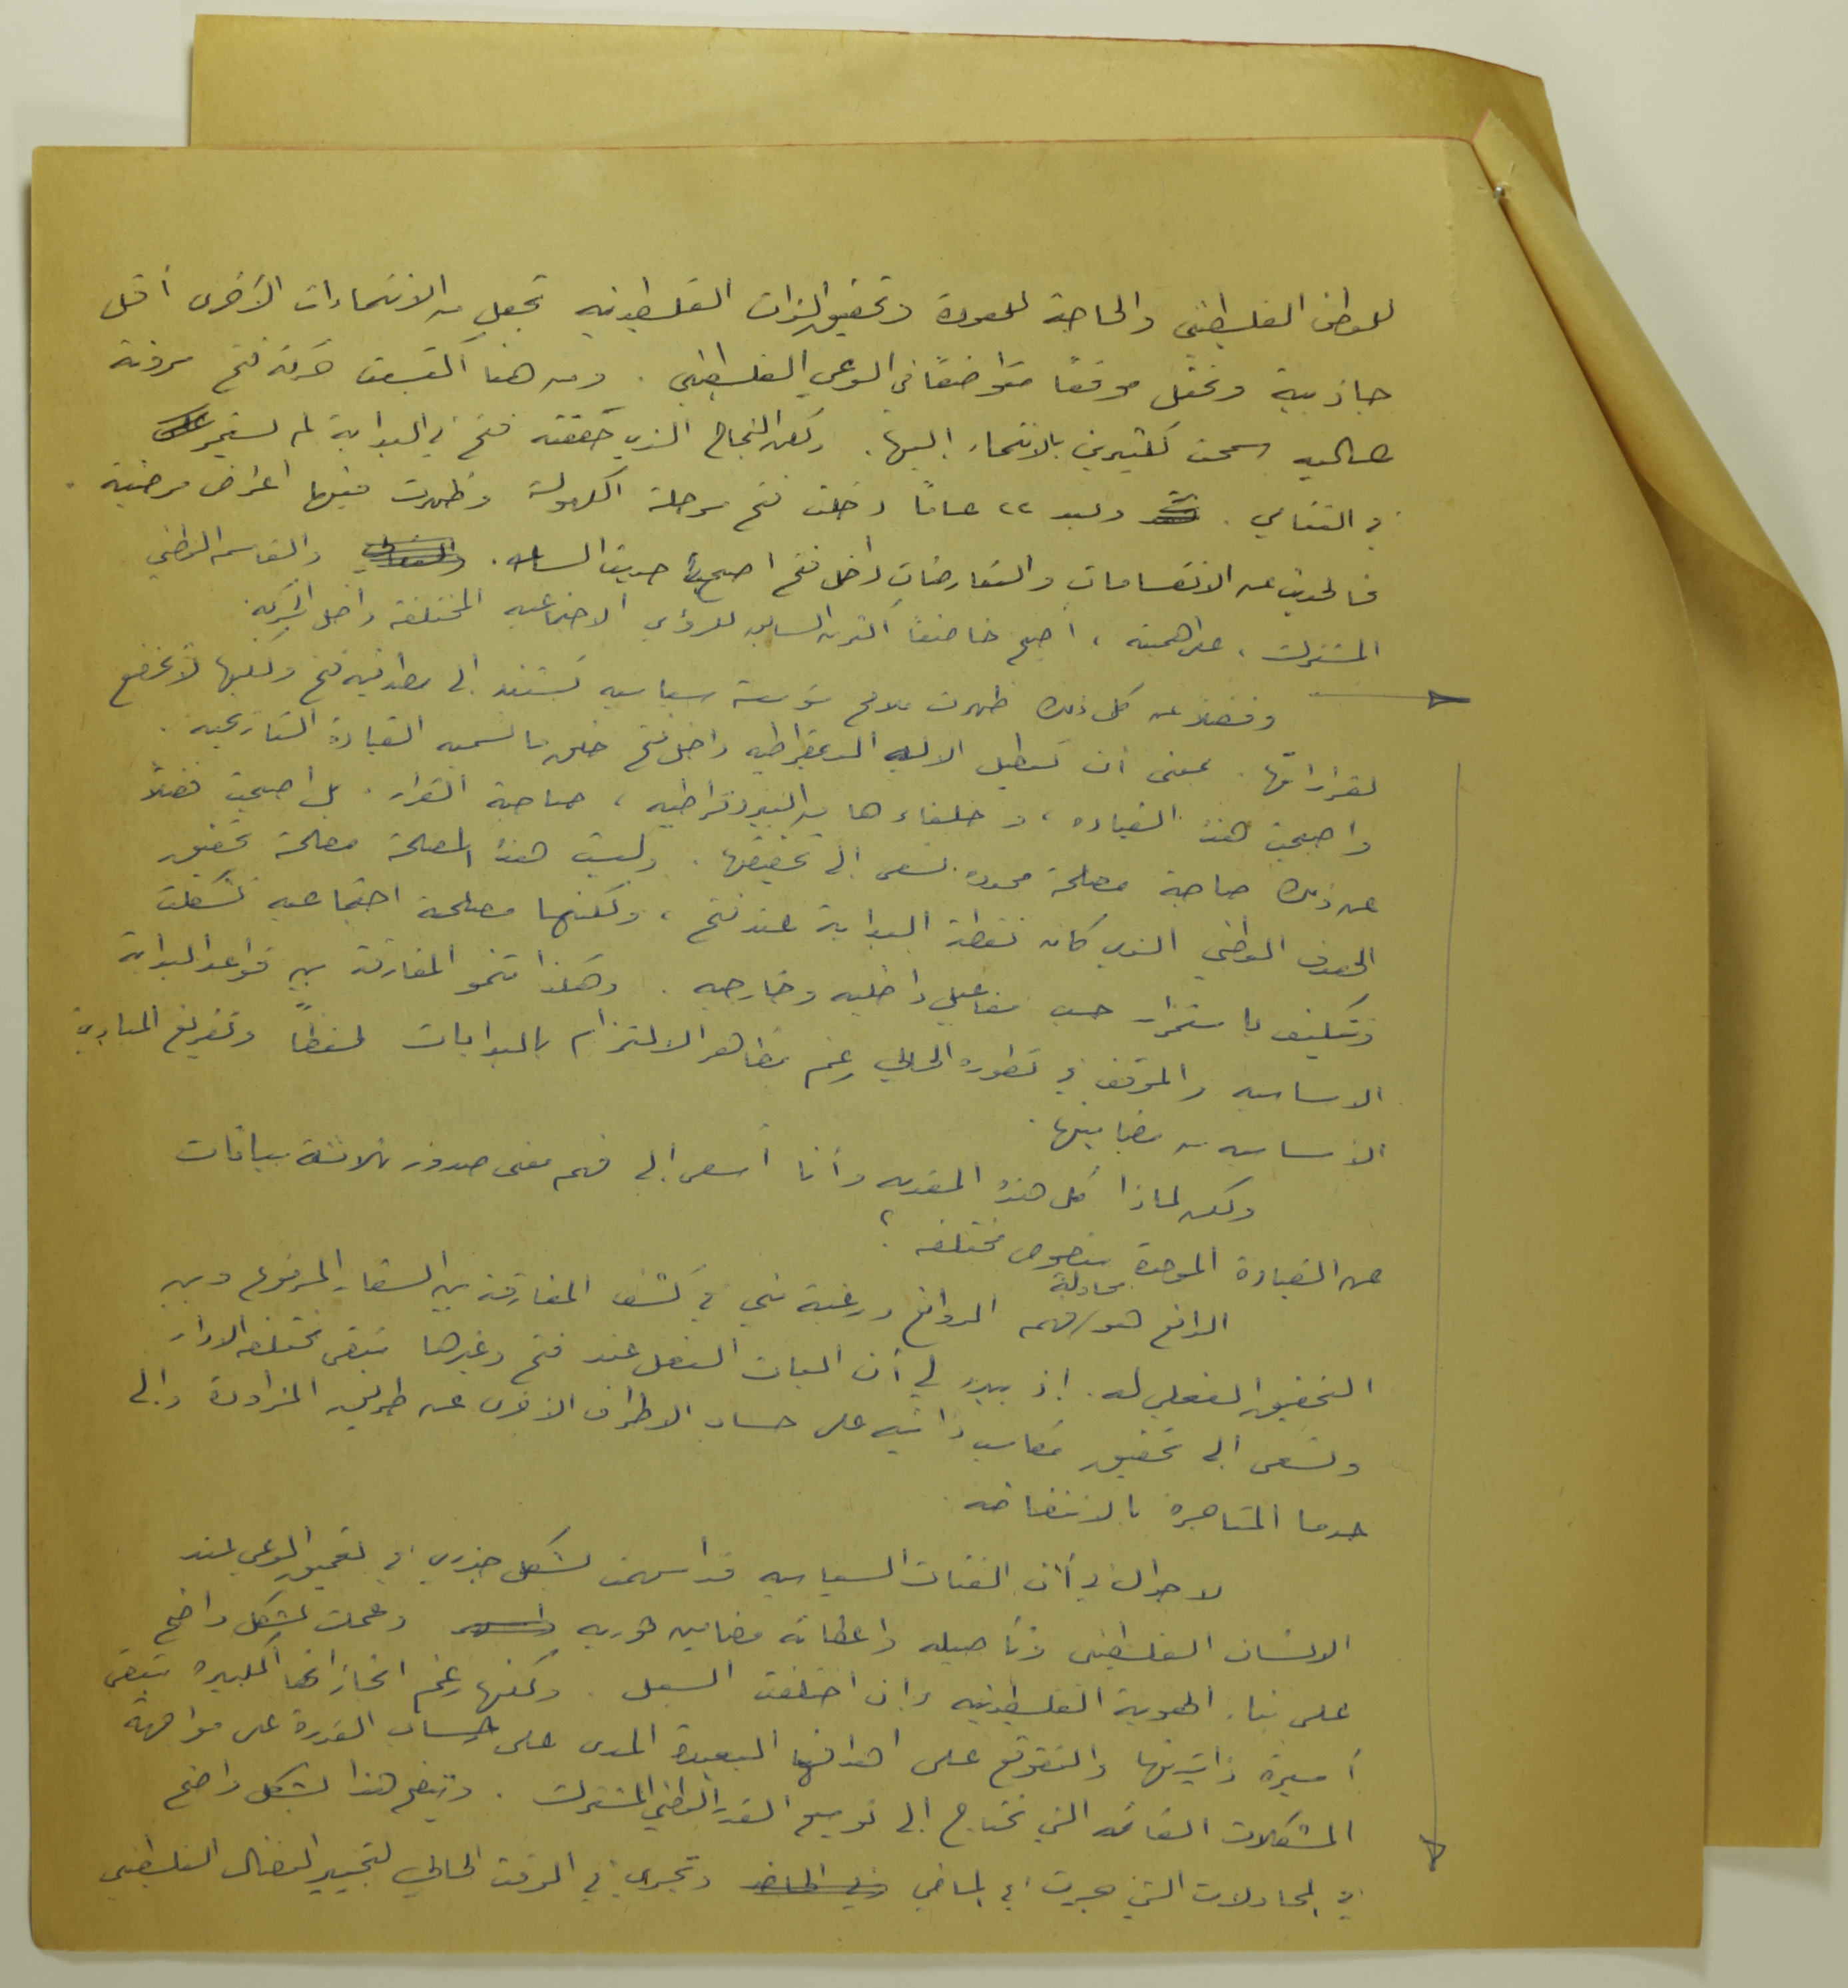 للوطن الفلسطيني والحاجة للعودة وتحقيق الذات الفلسطينيه تجعل من الانتماءات الأخرى أقل
جاذبية وتحتل موقعًا متواضعًا في الوعي الفلسطيني . ومن هنا اكتسبت حركة فتح مرونة
عاليه سمحت لكثيرين بالانتماء إليها. ولكن النجاح الذي حققته فتح في البداية لم يستمر
في التنامي . وبعد ٢٢ عامًا دخلت فتح مرحلة الكهولة وظهرت فيها اعراض مرضية .
فالحديث عن الانقسامات والتعارضات داخل فتح اصبح حديث الساعه . والقاسم الوطني
المشترك ، على اهميته ، أصبح خاضعًا أكثر من السابق للرؤى الاجتماعيه المختلفة داخل الحركة .
وفضلا عن كل ذلك ظهرت ملامح مؤسسة سياسيه تستند إلى مصداقية فتح ولكنها لا تخضع
لقراراتها . بمعنى أن تعطيل الاليه الديمقراطيه داخل فتح خلق ما نسميه القيادة التاريخيه .
واصبحت هذه القياده ، وخلفاءها من البيروقراطيه ، صاحبة القرار . بل اصبحت فضلاً
عن ذلك صاحبة مصلحة محدده تسعى إلى تحقيقها . وليست هذه المصلحة مصلحة تحقيق
الهدف الوطني الذي كان نقطة البداية عند فتح ، ولكنها مصلحة اجتماعيه تشكلت
وتكيفت باستمرار حسب مفاعيل داخليه وخارجيه . وهكذا تنمو المفارقة بين قواعد البداية
الاساسيه والموقف في تطوره الحالي رغم مظاهر الالتزام بالبدايات لفظًا وتفريغ المبادئ
الأساسيه من مضامينها .
ولكن لماذا كل هذه المقدمه وأنا أسعى إلى فهم معنى صدور ثلاثة بيانات
عن القيادة الموحدة بنصوص مختلفه ؟
الدافع هو محاولة فهم الدوافع ورغبة مني في كشف المفارقة بين الشعار المرفوع وبين
التحقيق الفعلي له . إذ يبدو لي أن اليات الفعل عند فتح وغيرها تبقى مختلفه الادوار
وتسعى إلى تحقيق مكاسب ذاتيه على حساب الاطراف الأخرى عن طريق المزاودة وإلى
حد ما المتاجرة بالانتفاضه
لا جدال في أن الفئات السياسيه قد اسهمت بشكل جذري في تعميق الوعي لهذا
الانسان الفلسطيني وتأصيله واعطائه مضامين ثوريه وعملت بشكل واضح
على بناء الهوية الفلسطينيه وإن اختلفت السبل . ولكنها رغم انجازاتها الكبيرة تبقى
أسيرة ذاتيتها والتقوقع على اهدافها البعيدة المدى على حساب القدرة على مواجهة
المشكلات القائمه التي تحتاج إلى توسيع القدر الوطني المشترك . ويتضح هذا بشكل واضح
في المحاولات التي جرت في الماضي وتجري في الوقت الحالي لتجيير النضال الفلسطيني